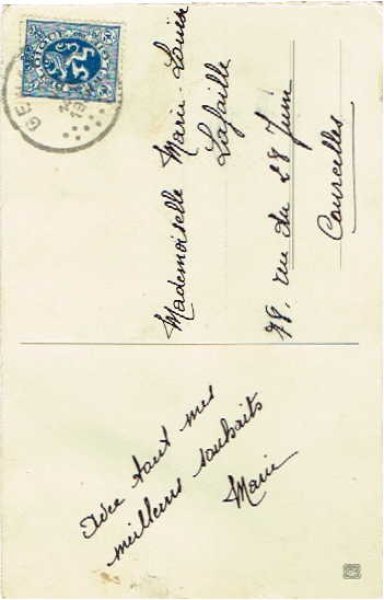 Avec tout mes
meilleurs souhaits
Marie
Mademoiselle Marie-Louise
Lafaille
78, rue du 28 Juin
Courcelles